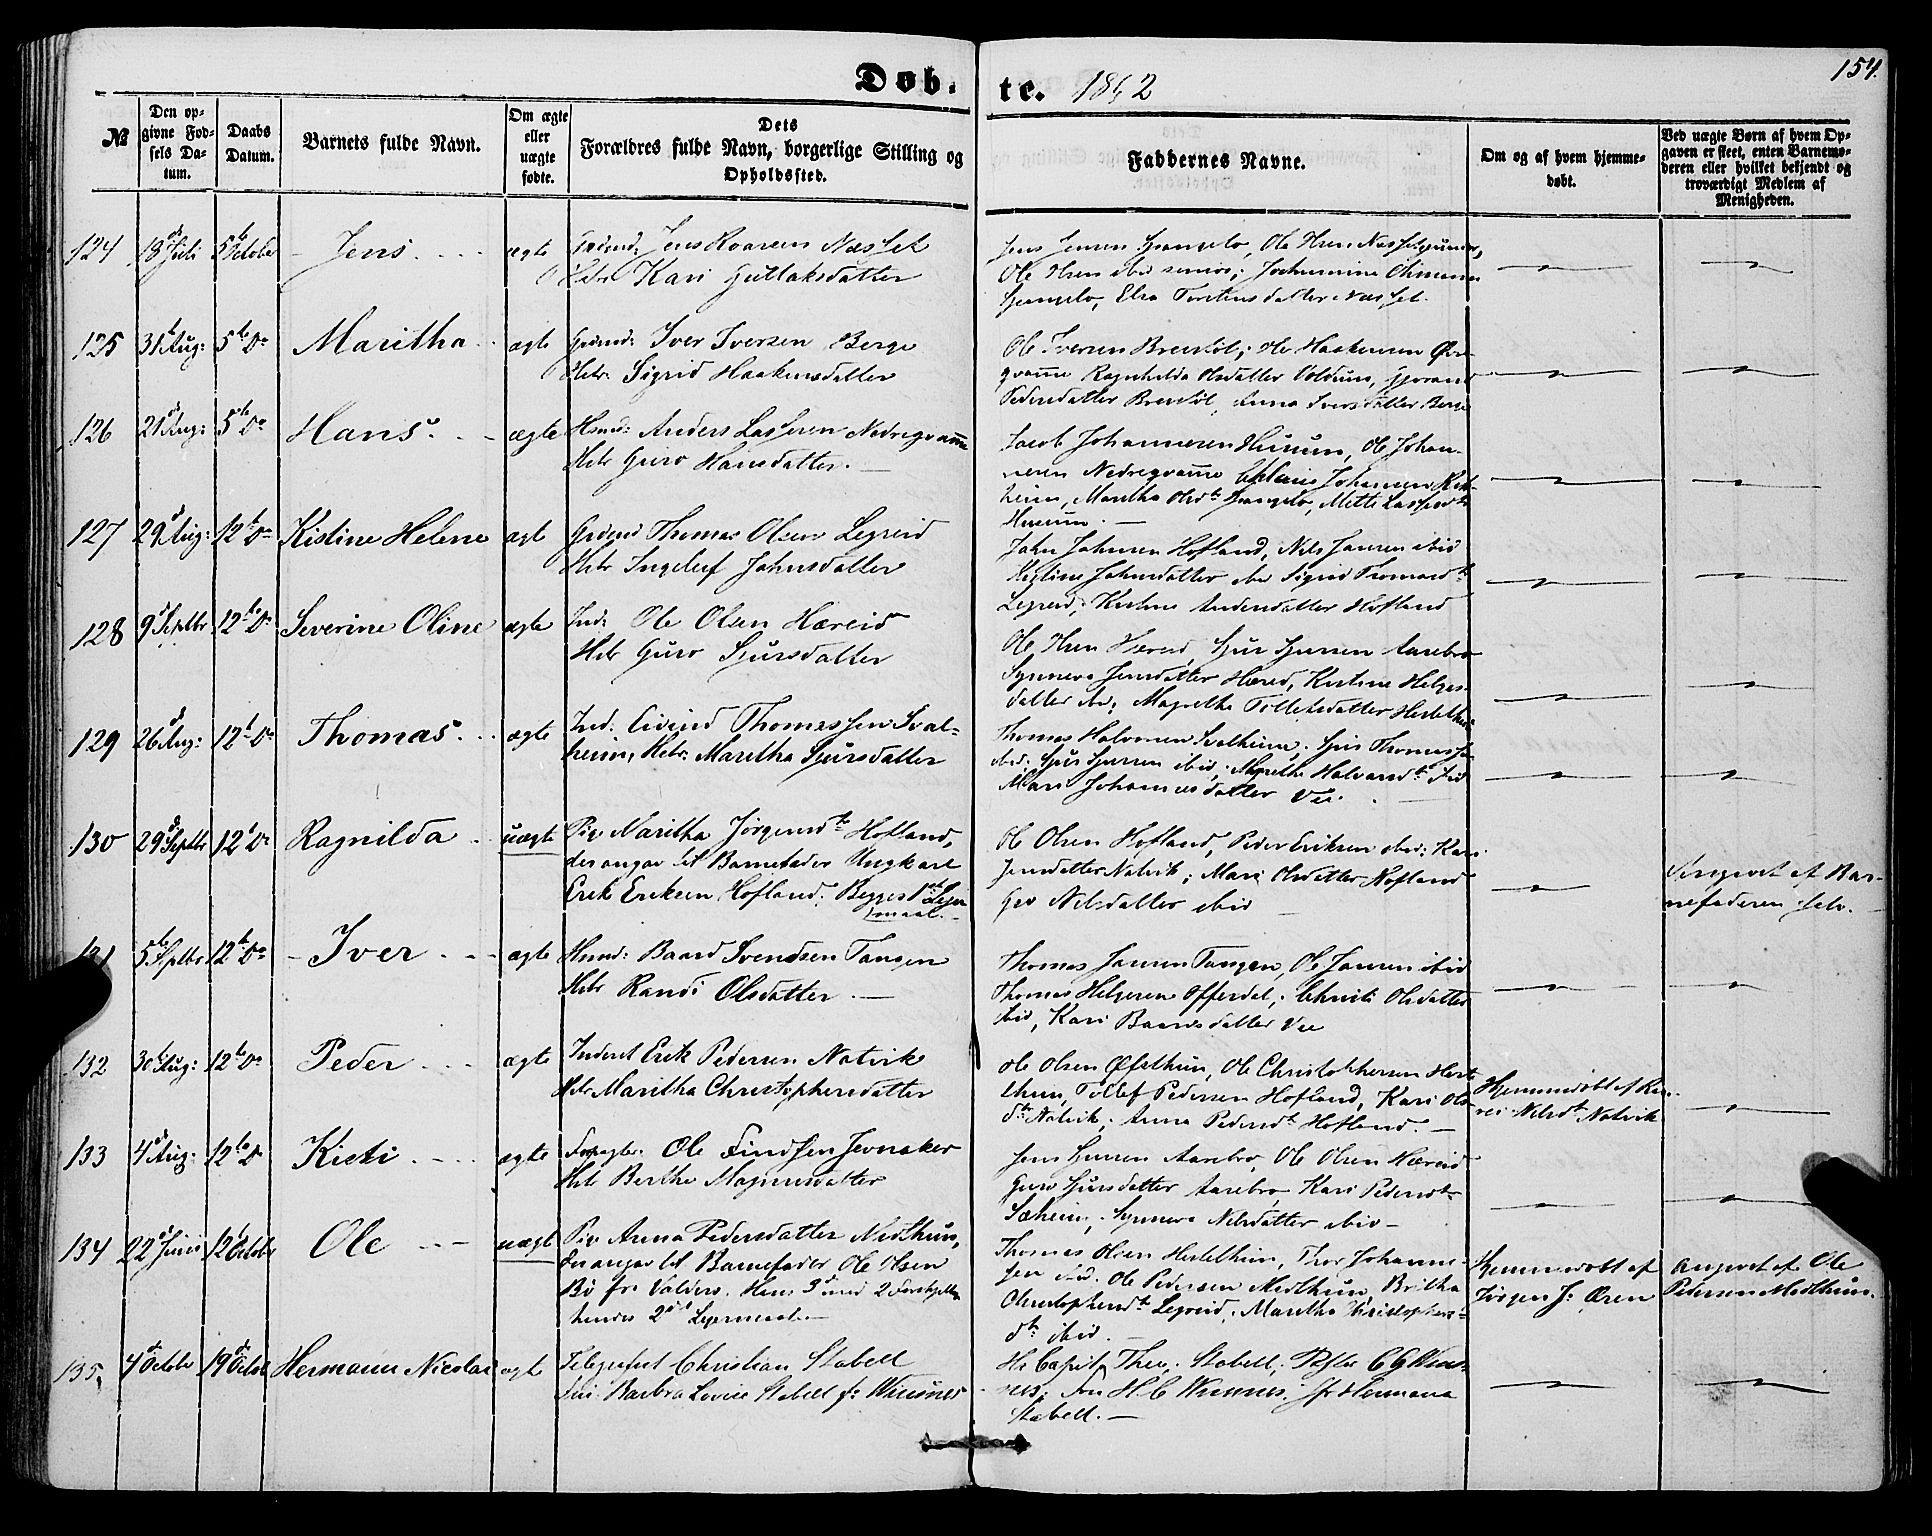 154.
Døb-te. 1862
№
Den op-
givne Fød-
sels Da-
tum.
Daabs
Datum.
Barnets fulde Navn.
Om ægte
eller
uægte
fødte.
Dets
Forældres fulde Navn, borgerlige Stilling og
Opholdssted.
Faddernes Navne.
Om og af hvem hjemme-
døbt.
Ved uægte Børn af hvem Op-
gaven er skeet, enten Barnemo-
deren eller hvilket bekjendt og
troværdigt Medlem af
Menigheden.
124 18de Juli 5te October Jens ægte Gdmd. Jens Roarsen Næsset
Hstr Kari Gullaksdatter
Ole Olsen ibid senior;
Elsa Torstensdatter Næsset.
125 31te Aug: 5te Do Maritha ægte Gdmd: Iver Iversen Berge
Hstr. Sigrid Haakensdatter
Ole Iversen Ole Haakensen Øvre-
qvamme Ragnhilda Olsdatter Voldum,
Pedersdatter Anna Iversdatter Berge
126 21de Aug: 5te Do Hans ægte Hsmd: Anders Lassesen Nedreqvamme
Hstr Guro Hansdatter.
Jacob Johannesen Husum, Ole Johan-
nesen Nedreqvamme Johannesen
Maritha Olsdtr Mette Lassesdtr
Husum.
127 29de Aug: 12te Do Kistine Helene ægte Grdmd Thomas Olsen Legreid
Hstr Ingeleif Johnsdatter
John Johnsen Hofland, Nils Jansen ibid
Johnsdatter ibid Sigrid Thomasdtr
Legreid, Kistine Andersdatter Hofland
128 9de Septbr 12te Do Severine Oline ægte Ind: Ole Olsen Hæreid
Hstr Guro Sjursdatter
Ole Olsen Hæreid, Sjur Sjursen Aarebro
Synneva Jensdatter Hæreid, Kistine Helges-
datter ibd; Magrethe Tollefsdatter Hestethun
129 26de Aug: 12te Do Thomas ægte Ind: Eivind Thomassen Sval-
heim, Hstr. Maritha Sjursdatter
Thomas Halvorsen Svalheim; Sjur Thomassen
ibid; Sjur Sjursen ibid; Halvorsdtr ibid
Mari Johannesdatter Vee.
130 29de Septbr 12te Do Ragnilda uægte Pige Maritha Jørgensdtr Hofland,
der angav til Barnefader Ungkarl
Erik Eriksen Hofland. Begges 1ste Leier-
maal.
Ole Olsen Hofland, Peder Eriksen ibid; Kari
Jensdatter Natvik; Mari Olsdatter Hofland
Nilsdatter ibid
Angivet af Bar-
nefaderen selv.
131 5te Septbr 12te Do Iver ægte Hsmd: Baard Svendsen Tangen
Hstr Randi Olsdatter.
Thomas Jansen Tangen, Ole Jansen ibid
Thomas Helgesen Offerdal; Christi Olsdatter
ibid, Kari Baardsdatter Vee
132 30te Aug: 12te Do Peder ægte Inderst Erik Pedersen Natvik
Hstr Maritha Christophersdatter
Ole Olsen Øfsthun, Ole Christophersen Heste-
thun, Tollef Pedersen Hofland, Kari Ols-
dtr Natvik, Anna Pedersdtr Hofland.
Hjemmedøbt af Ka-
ri Nilsdtr Natvik
133 4de Aug: 12te Do Kisti ægte Forpagter Ole Findsen Jevnaker
Hstr Berthe Magnusdatter
Jens Sjursen Aarebro, Ole Olsen Hæreid
Guro Sjursdatter Aarebro, Kari Pedersdtr
Sæheim, Synneva Nilsdatter ibid
134 22de Juni 12te October Ole uægte Pige Anna Pedersdatter Midthun,
der angav til Barnefader Ole Olsen
Bø fra Valders. Hans 3de med 2
hendes 2det Leiermaal.
Thomas Olsen Hestethun, Thor Johannes-
sen ibid. Ole Pedersen Midthun, Britha
Christophersdtr Legreid; Maritha Christophers-
dtr ibid.
Hjemmedøbt af
Jørgen J. Øren
Angivet af Ole
Pedersen Midthun.
135. 4de Octobr 19de Octobr Hermann Nicolai ægte Telegrafist Christian Stabell
Fru Barbra Lovise Stabell f: Wiesner
Hr Capit Theo. Stabell,
Fru H. C. Wiesner. Hermana
Stabell.